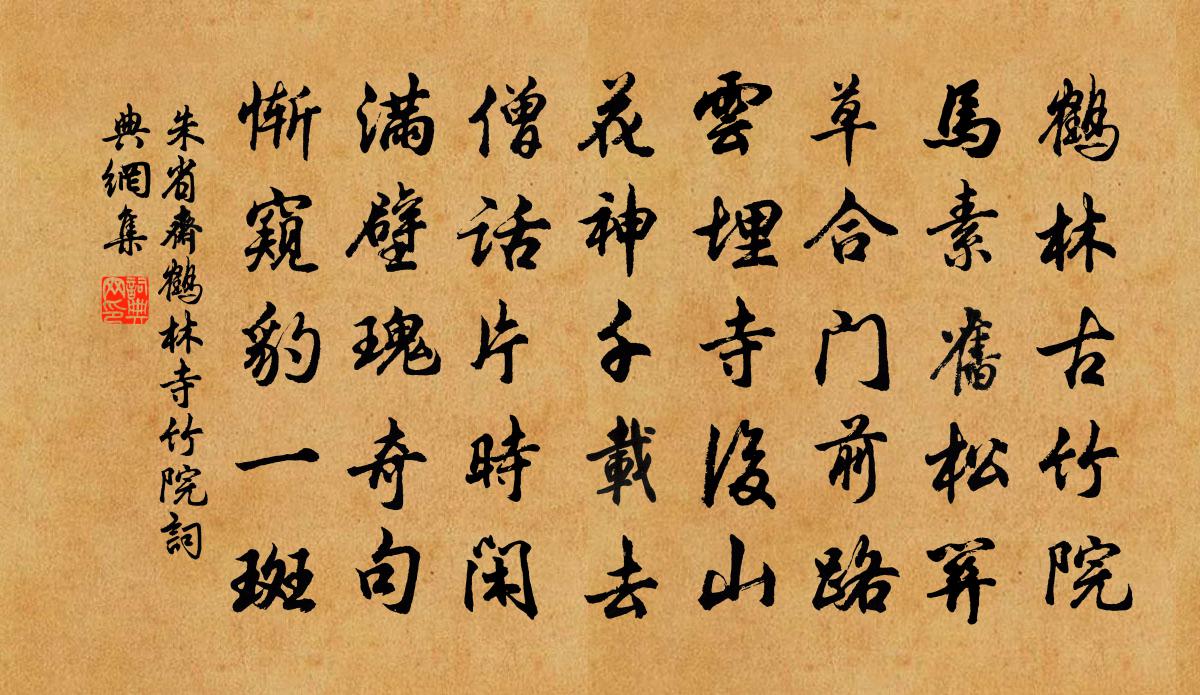 鶴林古竹院
馬素舊松關
草合门前路
雲埋寺後山
花神千載去
僧話片時閑
滿壁瑰奇句
慚窺豹一斑
朱省齋鶴林寺竹院詞
典網集
詞典网印